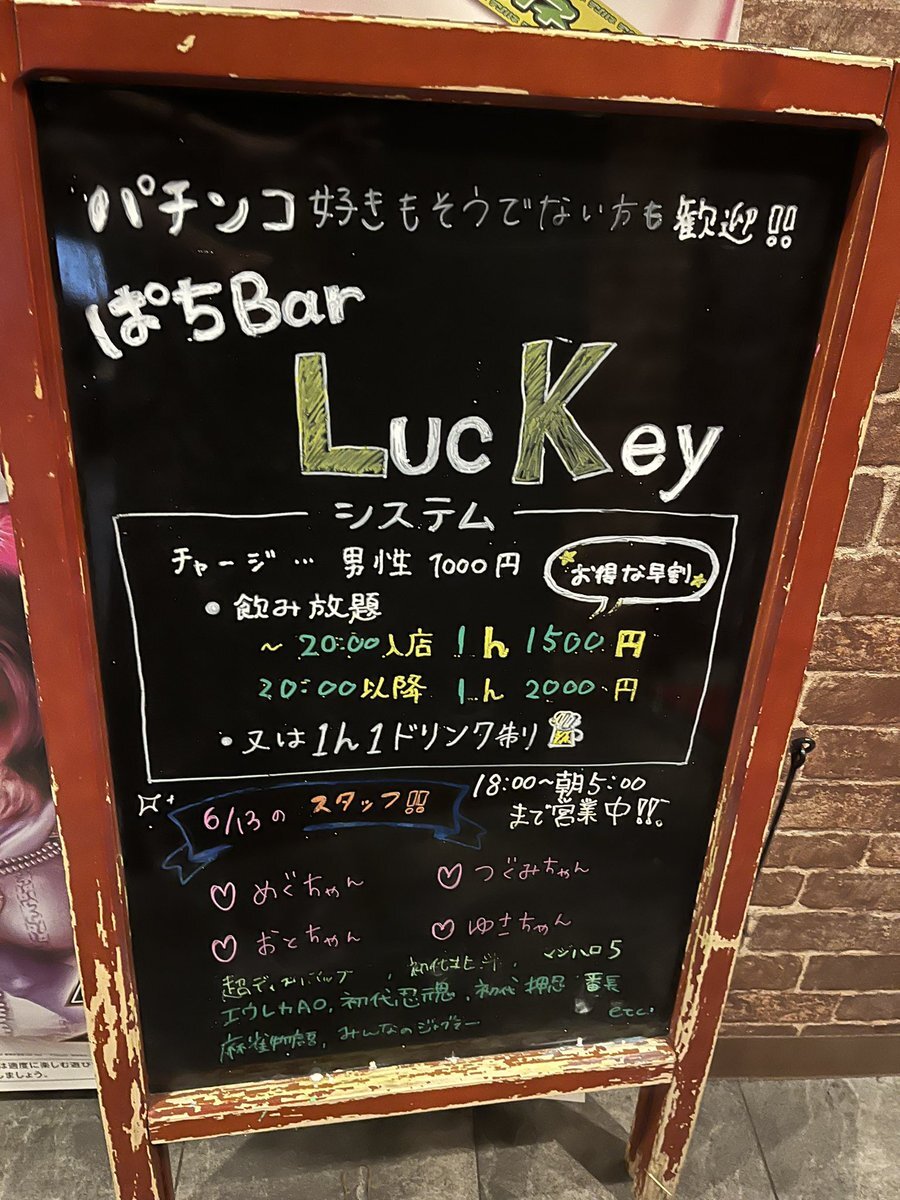 パチンコ好きもそうでない方も歓迎!!
ぱちBar
LucKey
システム
チャージ… 男性 1000円
お得な早割
・飲み放題
~20:00入店 1h 1500円
20:00以降 1h 2000円
・又は1h1ドリンク制り
18:00~朝5:00
まで営業中!!。
6/13の スタッフ!!
♡ めぐちゃん
♡ つぐみちゃん
♡ おとちゃん
♡ ゆさちゃん
超ディスクアップ, 初代北斗, マジハロ5
エウレカAO, 初代忍魂, 初代 押忍 番長
麻雀物語, みんなのジャグラー etc…
は適度に楽しむ遊び
しましょう。